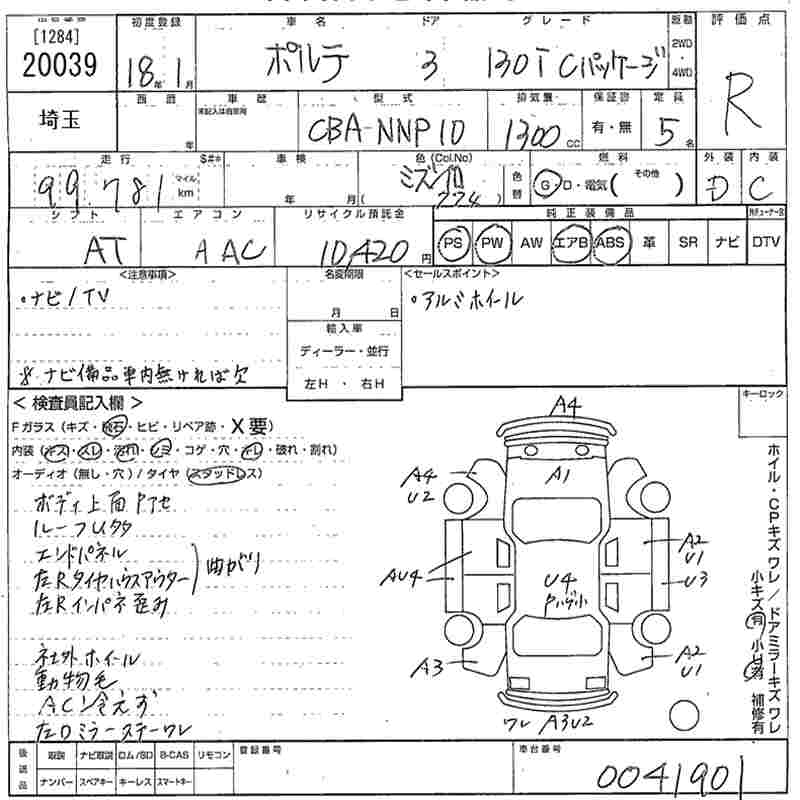 [1284]
20039
初度登録
18年 1月
車名
ポルテ
ドア
3
グレード
130T Cパッケージ
距離
2WD
・
4WD
評価点
R
埼玉
西暦
年
車歴
未記入は自家用
型式
CBA-NNP10
排気量
1300 CC
保証書
有・無
定員
5名
走行
99,781
マイル
km
S#*
車検
年 月
色(Col.No)
ミズイロ
(224)
色替
燃料
G・D・電気( その他 )
外装
D
内装
C
シフト
AT
エアコン
AAC
リサイクル預託金
10,420円
純正装備品
PS PW AW エアB ABS 革 SR ナビ DTV
<注意事項>
・ナビ/TV
※ナビ備品車内無ければ欠
名変期限
月 日
輸入車
ディーラー・並行
左H・右H
<セールスポイント>
・アルミホイール
<検査員記入欄>
Fガラス(キズ・飛石・ヒビ・リペア跡・X要)
内装(キズ・スレ・汚れ・シミ・コゲ・穴・キレ・破れ・割れ)
オーディオ(無し・穴)/タイヤ(スタッドレス)
ボディ上面Pアセ
ルーフUタタ
エンドパネル
左Rタイヤハウスアウター
曲がり
左Rインパネ歪み
社外ホイール
動物毛
AC冷えず
左Dミラーステーワレ
キーロック
ホイル・CPキズワレ/ドアミラーキズワレ
小キズ有 小U有 補修有
A4
A4
U2
A1
A2
U1
AU4
U4
Pハゲ小
U3
A3
A2
U1
ワレ A3U2
後送品
取説 ナビ取説 ロム/SD B-CAS リモコン
ナンバー スペアキー キーレス スマートキー
登録番号
車台番号
0041901